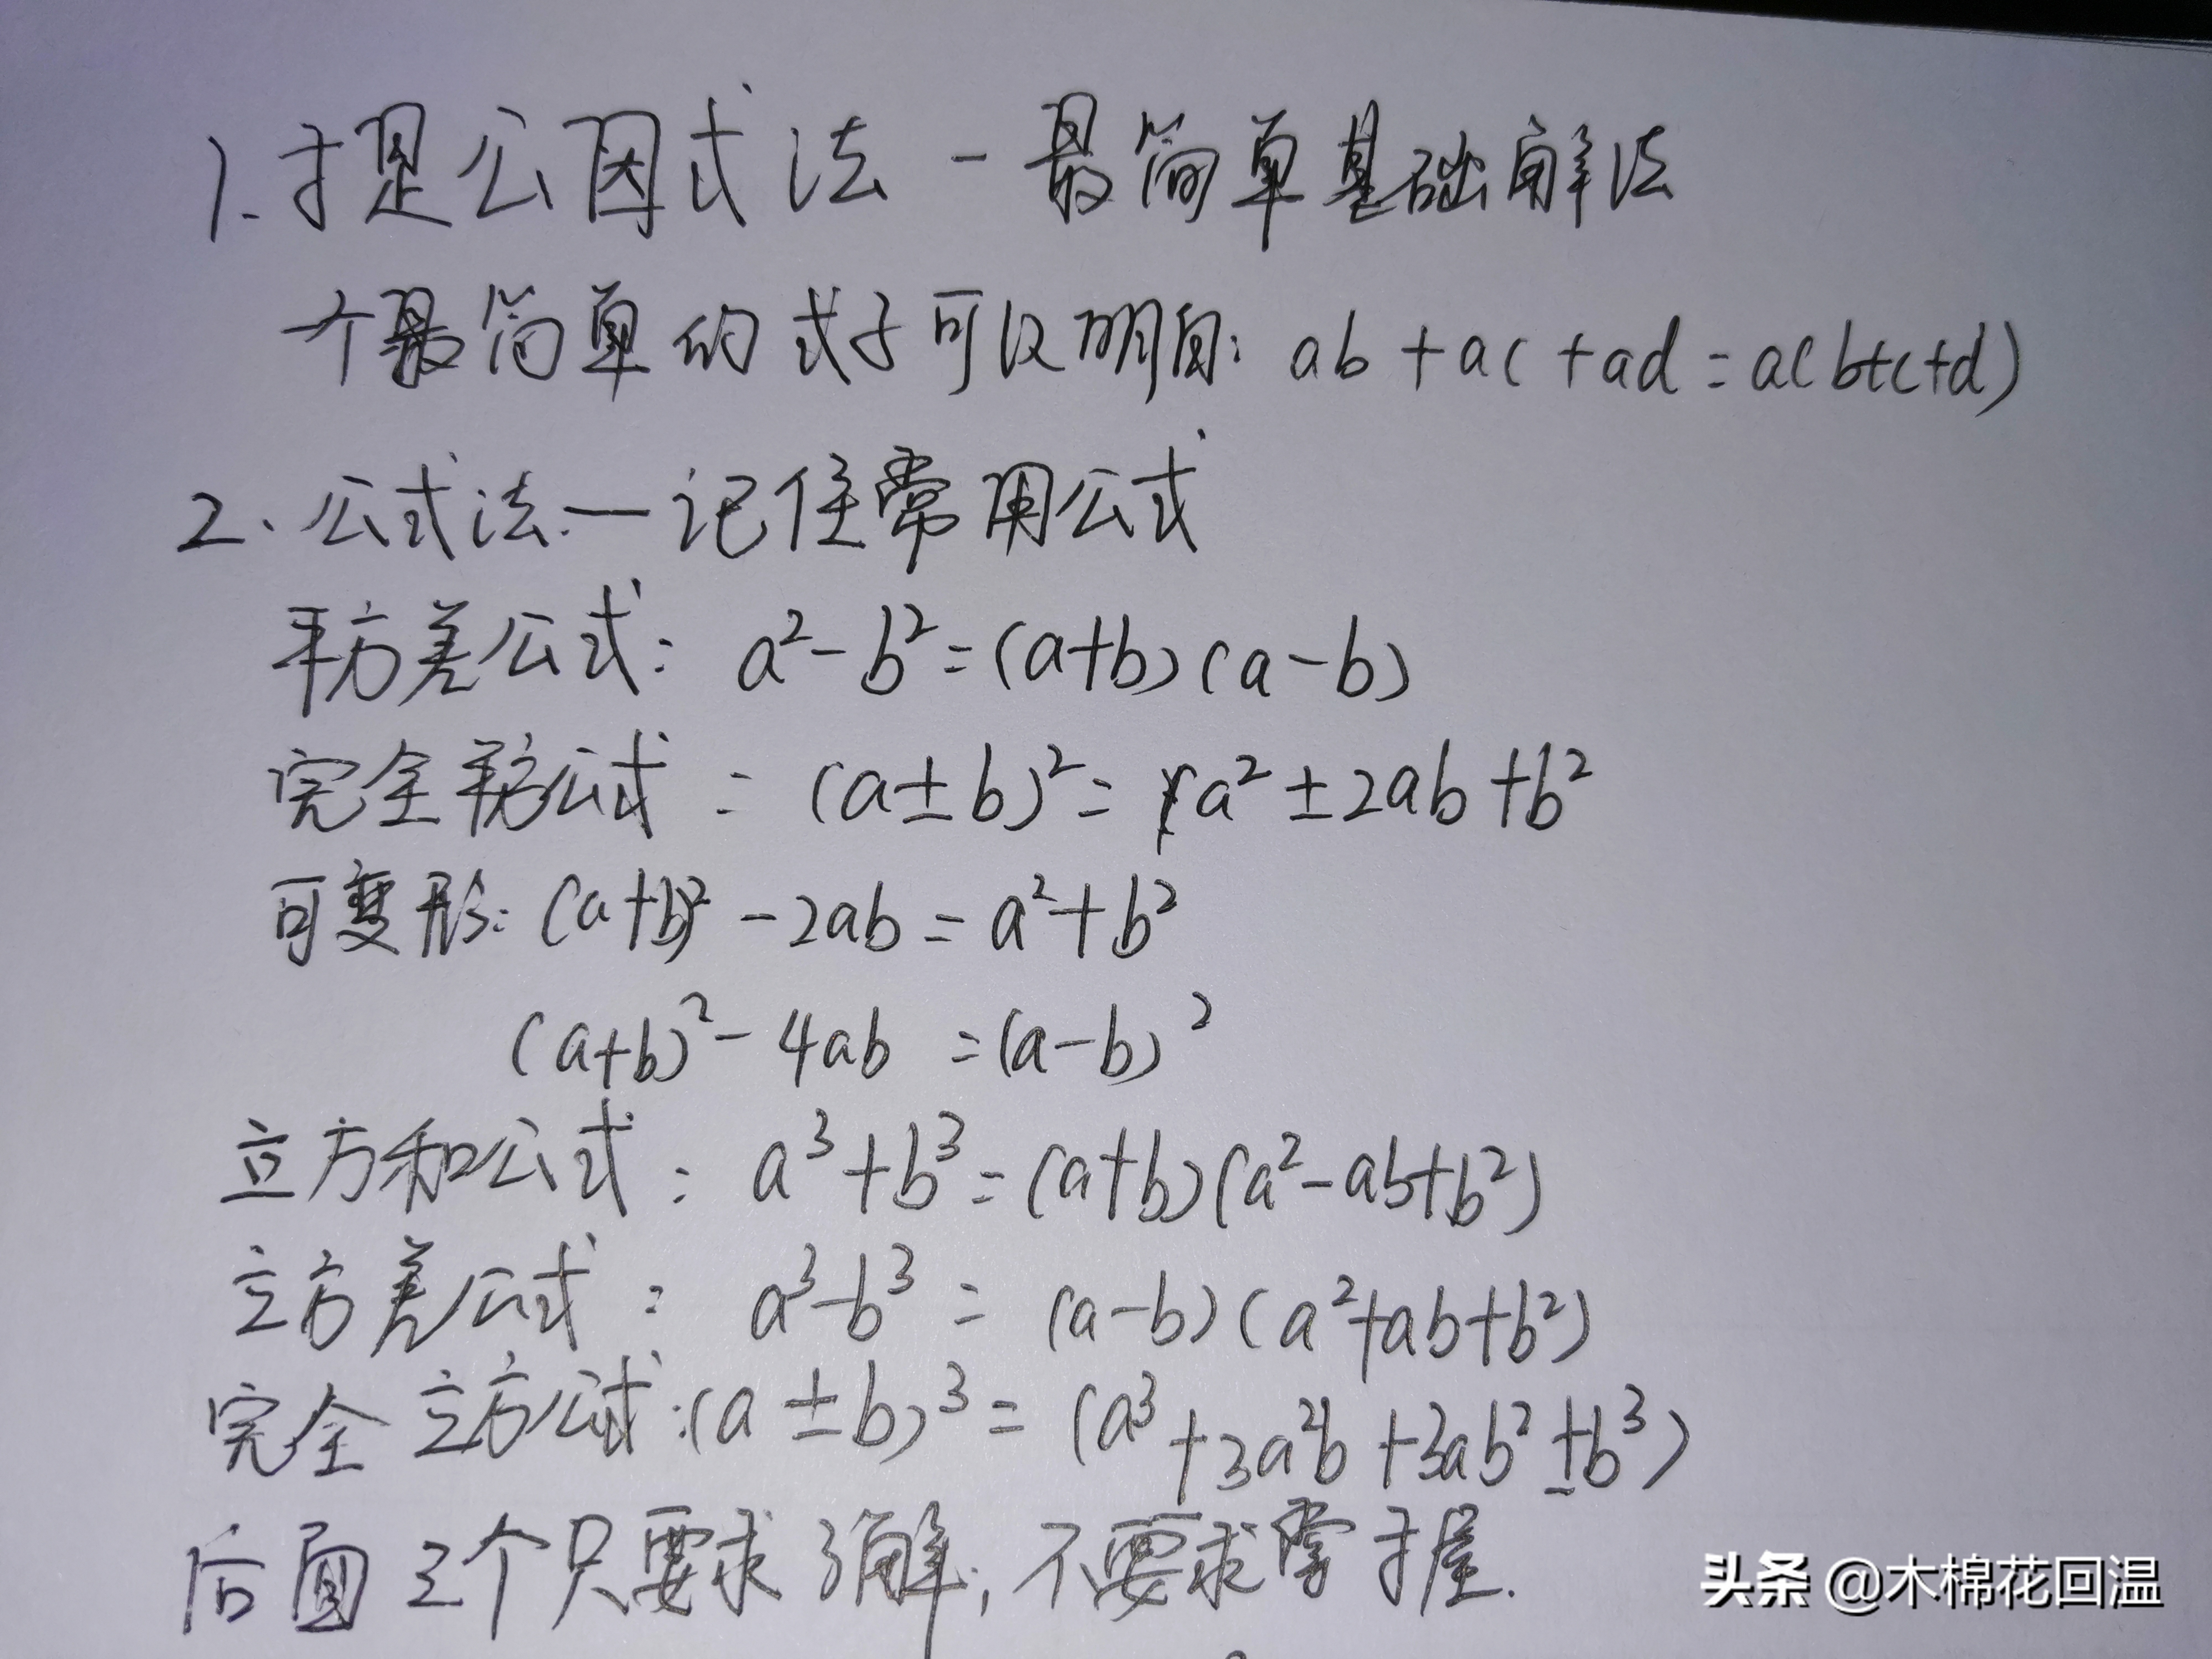 1.提公因式法-最简单基础解法
个最简单的式子可以明白: ab+ac+ad=a(b+c+d)
2、公式法—记住常用公式
平方差公式: a²-b²=(a+b)(a-b)
完全平方公式: (a±b)²=a²±2ab+b²
可变形: (a+b)²-2ab=a²+b²
(a+b)²-4ab=(a-b)²
立方和公式: a³+b³=(a+b)(a²-ab+b²)
立方差公式: a³-b³=(a-b)(a²+ab+b²)
完全立方公式:(a±b)³=(a³+3a²b+3ab²±b³)
后面三个只要求了解,不要求掌握.
头条 @木棉花回温